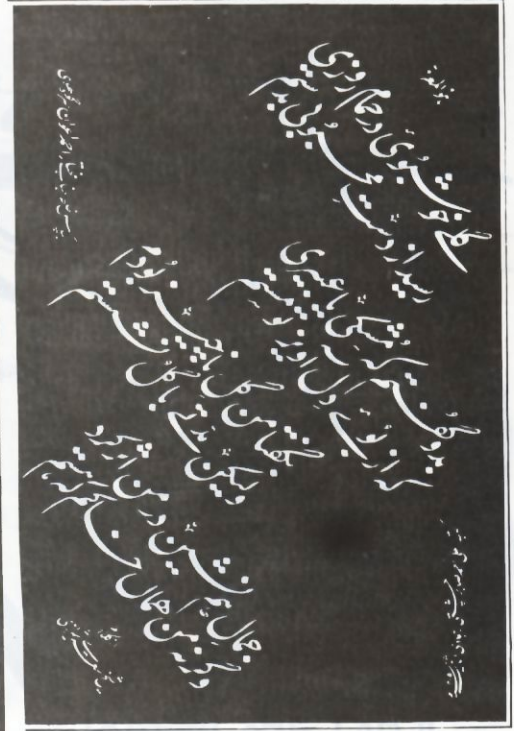 هو العزیز
گلی خوشبوئ در حمام روزی
رسید از دست محبوبی بدستم
بدو گفتم که مشکی یا عبیری
که از بوئے دل آویز تو مستم
بگفتا من گل ناچیز بودم
ولیکن مدتے با گل نشستم
جمال همنشین در من اثر کرد
وگرنه من همان خاکم که هستم